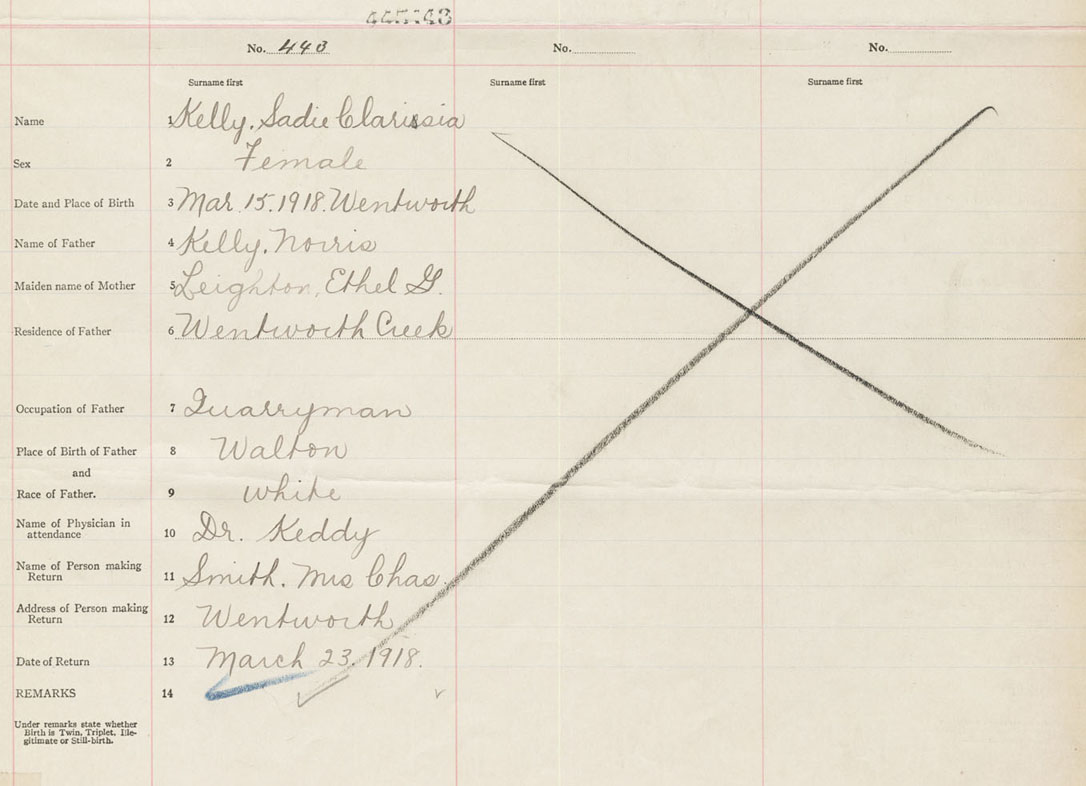 No. 443 No. No.
Surname first Surname first Surname first
Name 1 Kelly, Sadie Clarissia
Sex 2 Female
Date and Place of Birth 3 Mar. 15. 1918. Wentworth
Name of Father 4 Kelly, Norris
Maiden name of Mother 5 Leighton, Ethel G.
Residence of Father 6 Wentworth Creek
Occupation of Father 7 Quarryman
Place of Birth of Father 8 Walton
and
Race of Father. 9 White
Name of Physician in
attendance 10 Dr. Keddy
Name of Person making
Return 11 Smith. Mrs Chas.
Address of Person making
Return 12 Wentworth
Date of Return 13 March 23, 1918.
REMARKS 14
Under remarks state whether
Birth is Twin, Triplet, Ille-
gitimate or Still-birth.